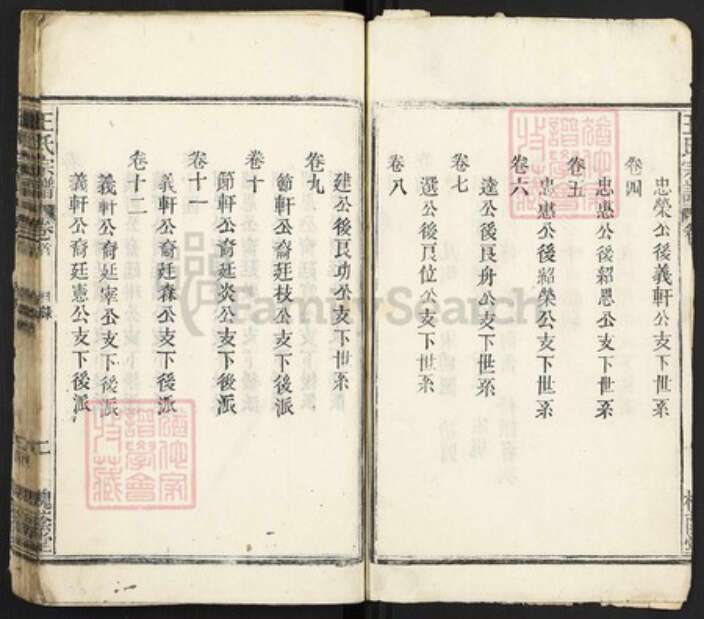 忠榮公後義軒公支下世系
卷四
忠惠公後紹恩公支下世系
卷五
忠惠公後紹榮公支下世系
卷六
達公後良舟公支下世系
卷七
選公後良位公支下世系
卷八
建公後良功公支下世系
卷九
節軒公裔廷枝公支下後派
卷十
節軒公裔廷炎公支下後派
卷十一
義軒公裔廷森公支下後派
卷十二
義軒公裔廷宰公支下後派
義軒公裔廷憲公支下後派
王氏宗譜
目錄
槐蔭堂
FamilySearch